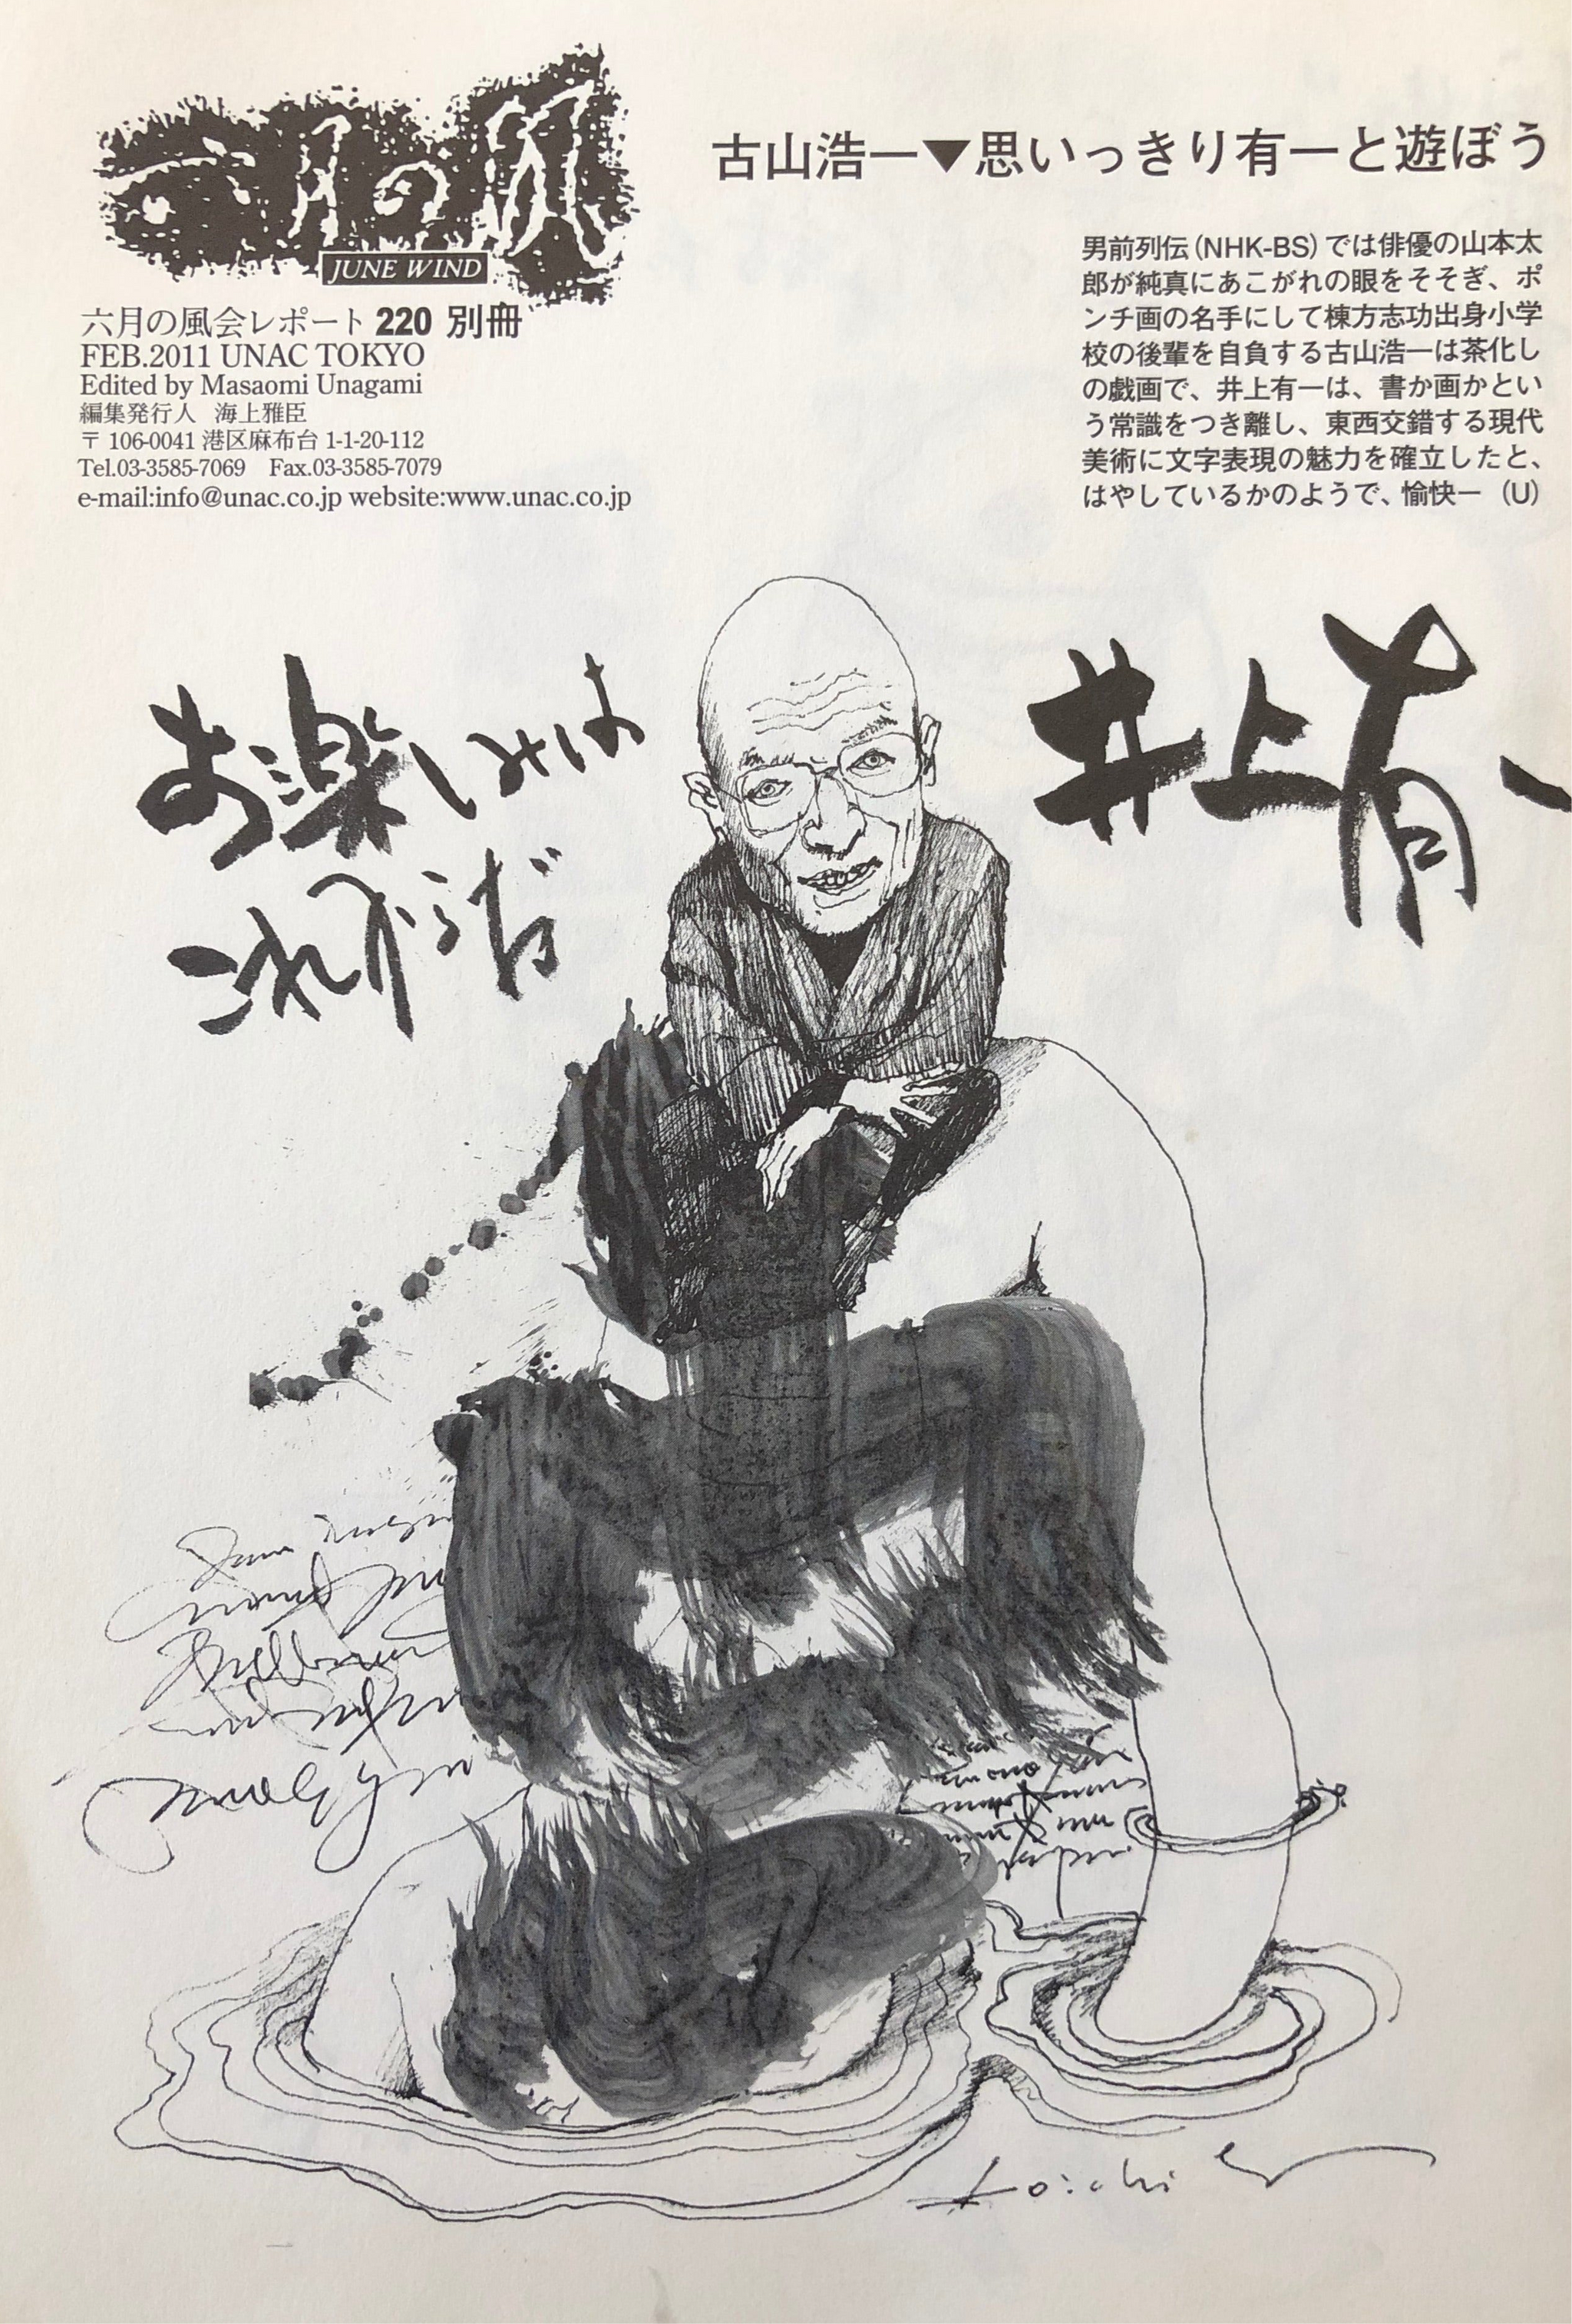 六月の風
JUNE WIND
六月の風会レポート 220 別冊
FEB.2011 UNAC TOKYO
Edited by Masaomi Unagami
編集発行人　海上雅臣
〒 106-0041 港区麻布台 1-1-20-112
Tel.03-3585-7069　Fax.03-3585-7079
e-mail:info@unac.co.jp website:www.unac.co.jp
古山浩一▼思いっきり有一と遊ぼう
男前列伝(NHK-BS)では俳優の山本太
郎が純真にあこがれの眼をそそぎ、ポ
ンチ画の名手にして棟方志功出身小学
校の後輩を自負する古山浩一は茶化し
の戯画で、井上有一は、書か画かとい
う常識をつき離し、東西交錯する現代
美術に文字表現の魅力を確立したと、
はやしているかのようで、愉快一（U）
井上有一
お楽しみは
これからだ
Koichi